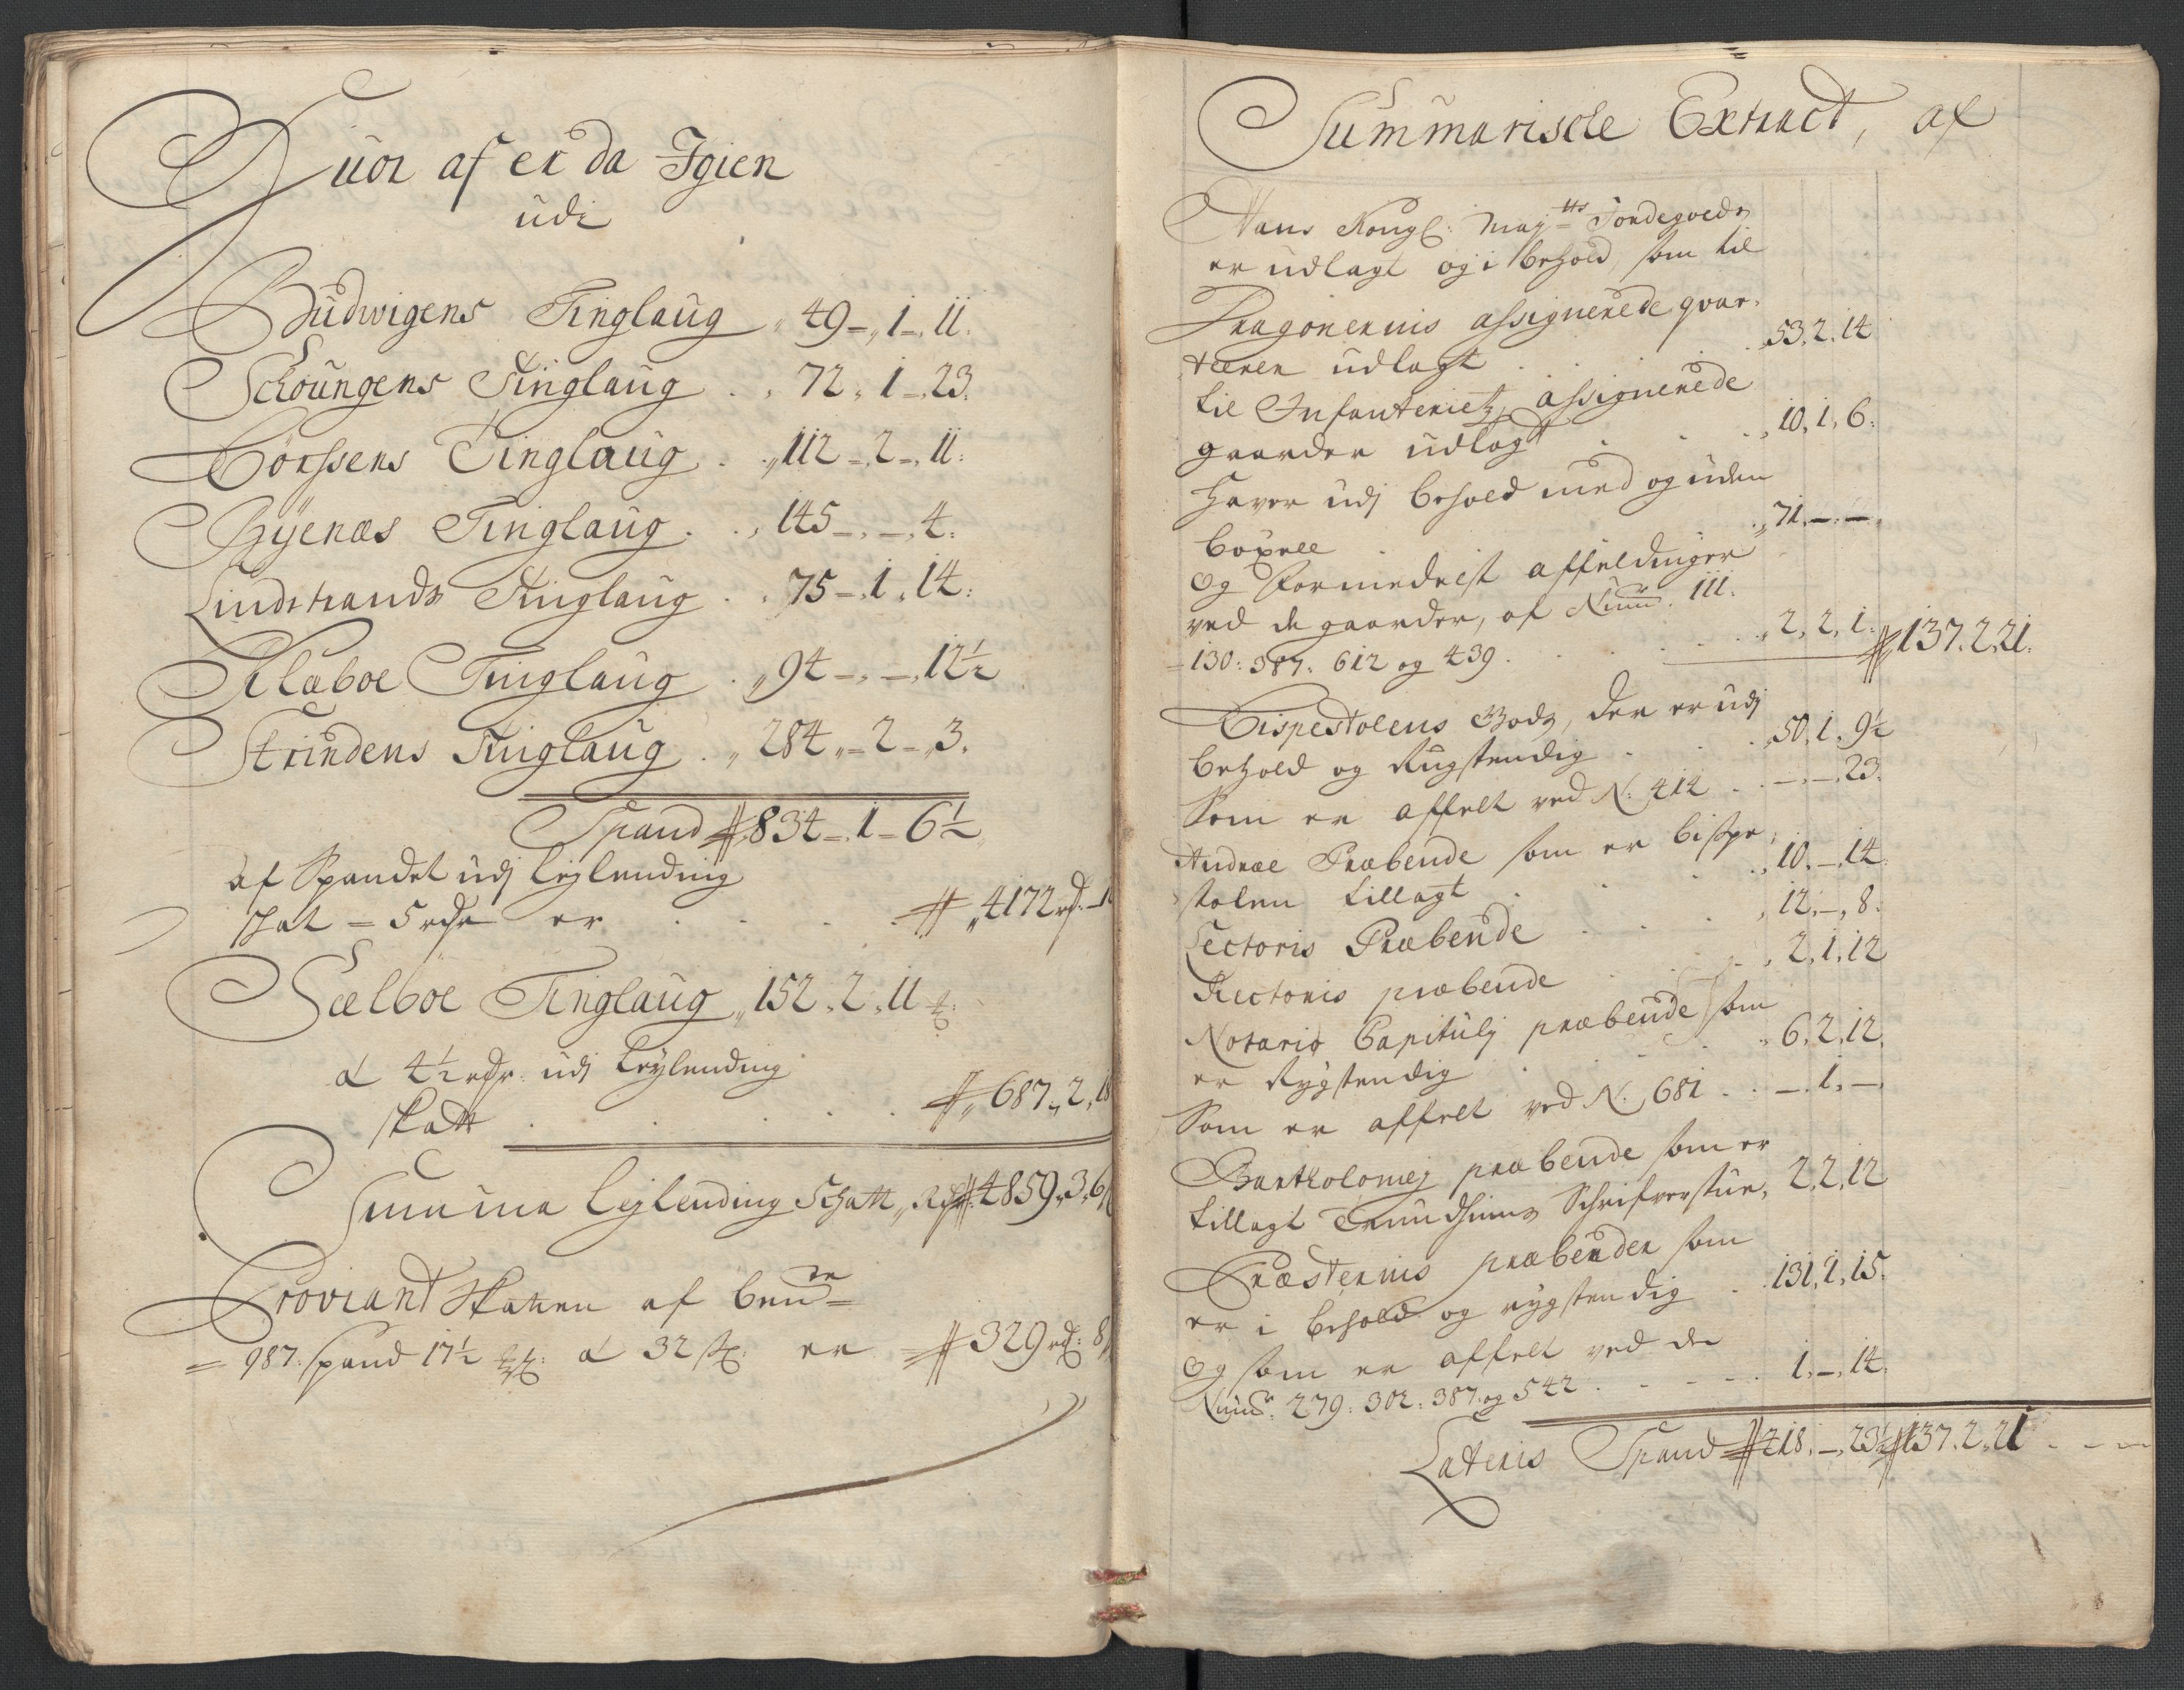 Huor af er da Igien
udi
Budwigens Tinglaug „ 49 – „ 1 – „ 11.
Schoungens Tinglaug . „ 72 „ 1 – 23.
Børssens Tinglaug . . „ 112 – 2 – „ 11.
Byenæs Tinglaug . . „ 145 – „ – „ 4.
Lindstrands Tinglaug . „ 75 – 1 „ 14.
Klæboe Tinglaug . „ 94 – „ – „ 12½
Strindens Tinglaug . „ 284 „ – 2 – „ 3.
Spand 834 – 1 – 6½
af Spandet udj Leylending
skat = 5 rdr er . . . . 4172 rd: –
Sælboe Tinglaug „ 152 „ 2 „ 11
a 4½ rdr: udj Leylending
skatt . . . . „ 687 „ 2 „ 18
Summa Leylending Schatt „ Rdr 4859 „ 3 „ 6
Proviant Skaten af bente
= 987 Spand 17½ a 32 sk: er 329 rd: 8
Summarische Extract, af
Hans Kongl: Maytts Jordegods
er udlagt og i behold, som til
Dragonernis assignerede qvar-
teerer udlagt . . „ 53. 2. 14
til Infanteriets assignerede
gaarder udlagt . . . „ 10, 1, 6.
Haver udj behold med og uden
boxell . . „ 71. – . – .
og formedelst affeldinger
ved de gaarder, af Numr. 111.
= 130: 387. 612 og 439 . . . „ 2, 2, 1. 137. 2. 21.
Bispestolens Gods, der er udj
behold og Rugstendig . . . „ 50. 1. 9½
Som er affelt ved N. 414 . . – . – . 23.
Andreæ Præbende som er bispe-
stolen tillagt . . . „ 10. – . 14.
Lectoris Præbende . . . „ 12. – , 8.
Rectoris præbende . . . „ 2, 1, 12
Notario Capitulj præbende som
er Rygstendig . . . „ 6. 2. 12.
Som er affelt ved N. 681 . . – . 1. – .
Bartholomej præbende som er
tillagt Trundhiems Schrifverstue, 2, 2, 12
Præsternis præbender som
er i behold og rygstendig . 131, 1, 15.
og som er affelt ved de
Numr. 279: 302: 387. og 542 . . . . . 1. – . 14.
Lateris Spand 218. – . 23½ 137. 2. 21